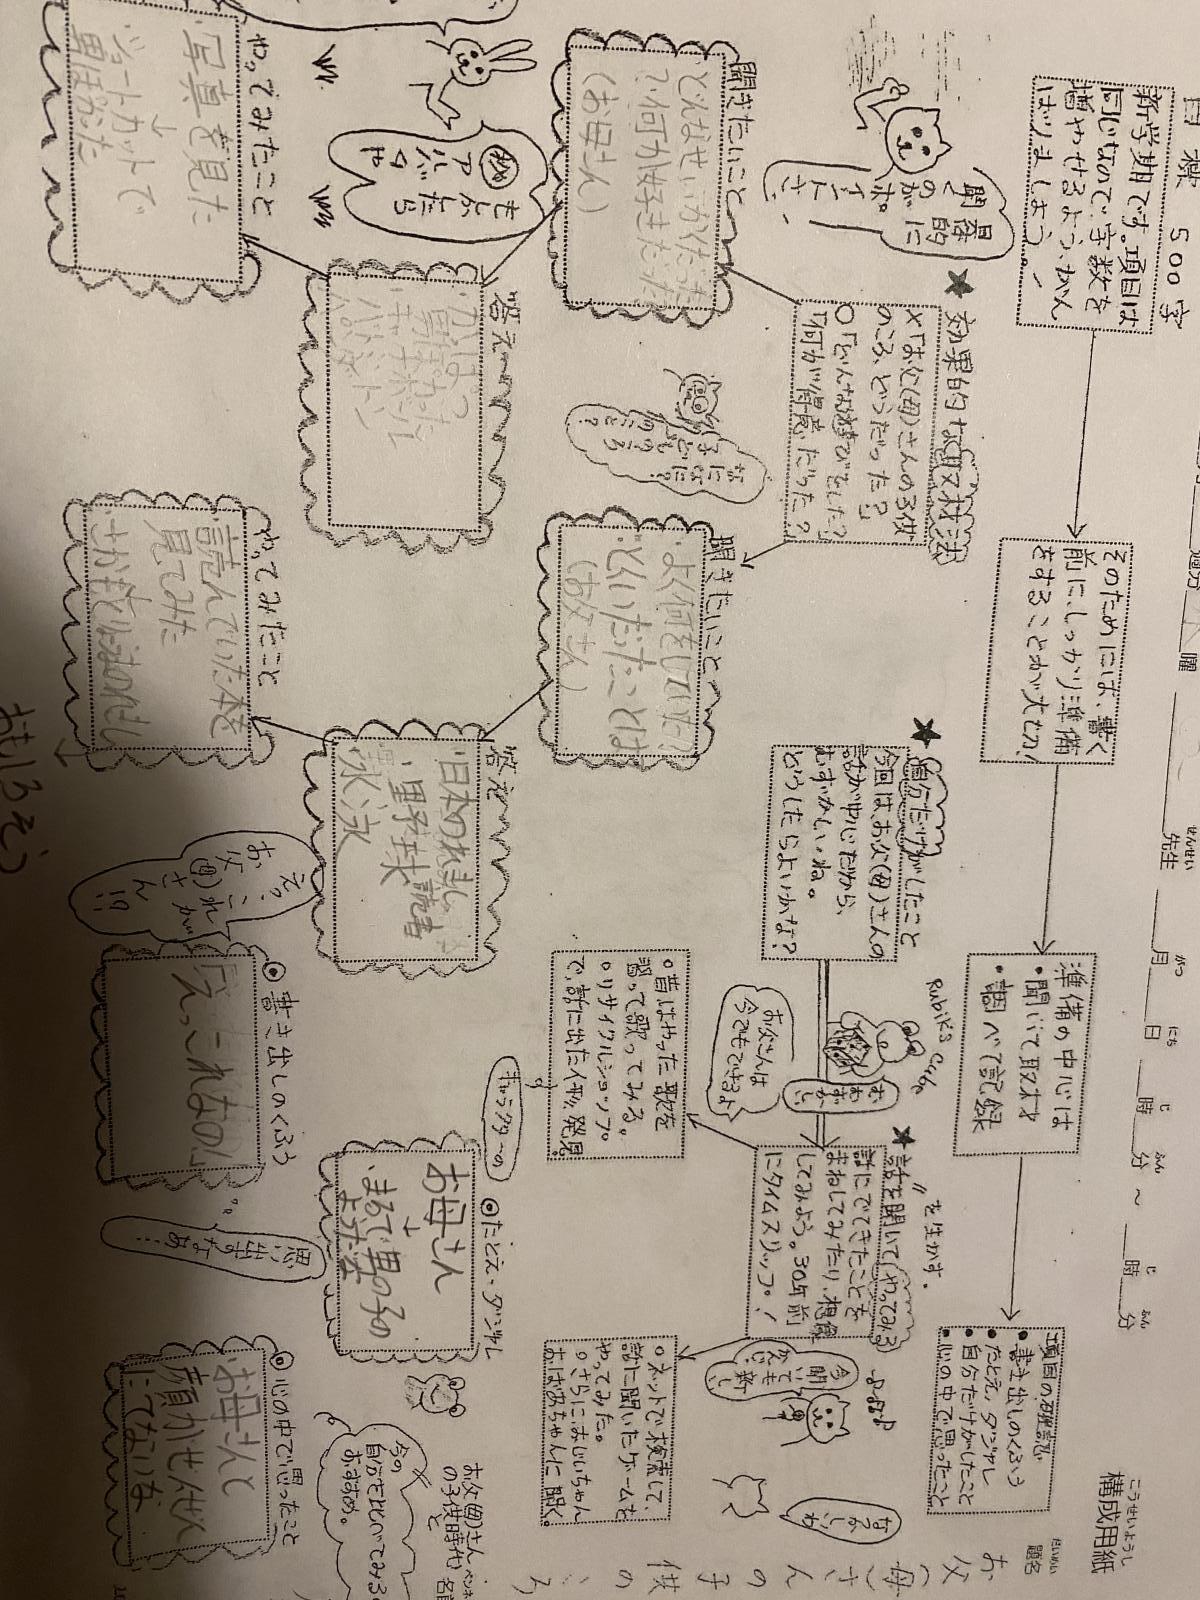 構成用紙
こうせいようし
題名
お父(母)さんの子供のころ
先生
せんせい
月
がつ
日
にち
時
じ
分
ふん
～
時
じ
分
ふん
目標 500字
新学期です。項目は
同じなので、字数を
増やせるよう、がん
ばりましょう。
そのためには、書く
前に、しっかり準備
をすることが大切。
準備の中心は
・聞いて取材
・調べて記録
項目の確認
・書き出しのくふう
・たとえ、ダジャレ
・自分だけがしたこと
・心の中で思ったこと
★効果的な取材法
×「お父(母)さんの子供
のころ、どうだった？」
○「どんな遊びをした？」
「何が得意だった？」
具体的に
聞くのが
ポイントさ。
なに？
なに？
子どもの
ころ
★自分だけがしたこと
今回は、お父(母)さんの
話が中心だから、
むずかしいね。
どうしたらよいかな？
Rubik's Cube
お父さんは
今でもできるよ
★話を聞いてやってみる
〃を生かす。
話にでてきたことを
まねしてみたり、想像
してみよう。30年前
にタイムスリップ！
○昔はやった歌を
習って歌ってみる。
○リサイクルショップ
で、話に出た人形発見。
キャラクターの
○ネットで検索して、
話に聞いたゲームを
やってみた。
○さらにおじいちゃん
おばあちゃんに聞く。
今聞いても
新しい
なつかしいね
聞きたいこと
どんなせいかくだった
で、何が好きだった
(お母さん)
答え
かっぱつ
男時だった
バドミントン
やってみたこと
写真を見た
↓
ショートカットで
男ぽかった
㊙
もしかしたら
アソコや
聞きたいこと
よく何をしていた？
とくいだったことは
(お父さん)
答え
旧本のれきし
読書
・野球
水泳
やってみたこと
・読んでいた本を
見てみた
おもしろそう
◎書き出しのくふう
「えっこれなの」
え？
これが
お父(母)さん!?
◎たとえ・ダジャレ
お母さん
↓
まるで男の子の
ような
◎心の中で思ったこと
お母さんと
顔がぜんぜん
にてないな
思い出すなあ…
お父(母)さん
と
の子供時代
今の
自分と比べてみるの
おすすめ。